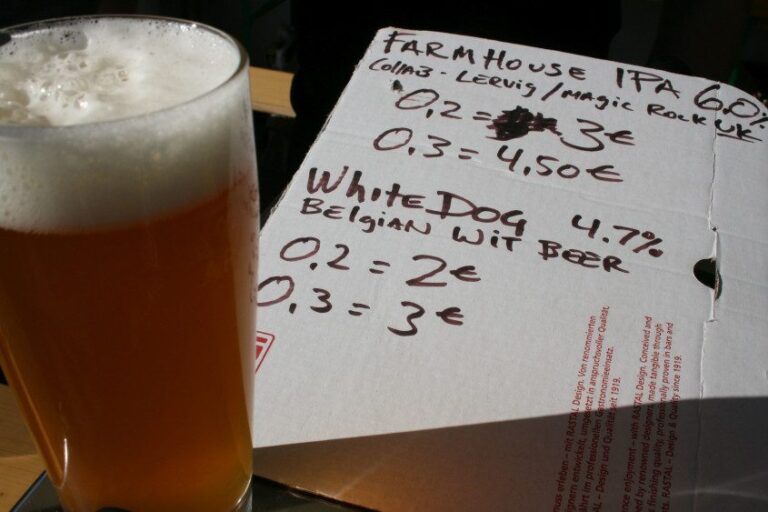 FARMHOUSE IPA 6.0%
COllAB - LERVig / MAGIC ROCK UK
0,2 = 3€
0,3 = 4,50€
WHitE DOG 4.7%
BElgiAN WiT BEER
0,2 = 2€
0,3 = 3€
erleben – mit RASTAL Design. Von renommierten
entwickelt, umgesetzt in anspruchsvoller Qualität,
im professionellen Gastronomieeinsatz.
– Design und Qualität seit 1919.
enjoyment – with RASTAL Design. Conceived and
by renowned designers, made tangible through
finishing quality, professionally proven in bars and
RASTAL – Design & Quality since 1919.